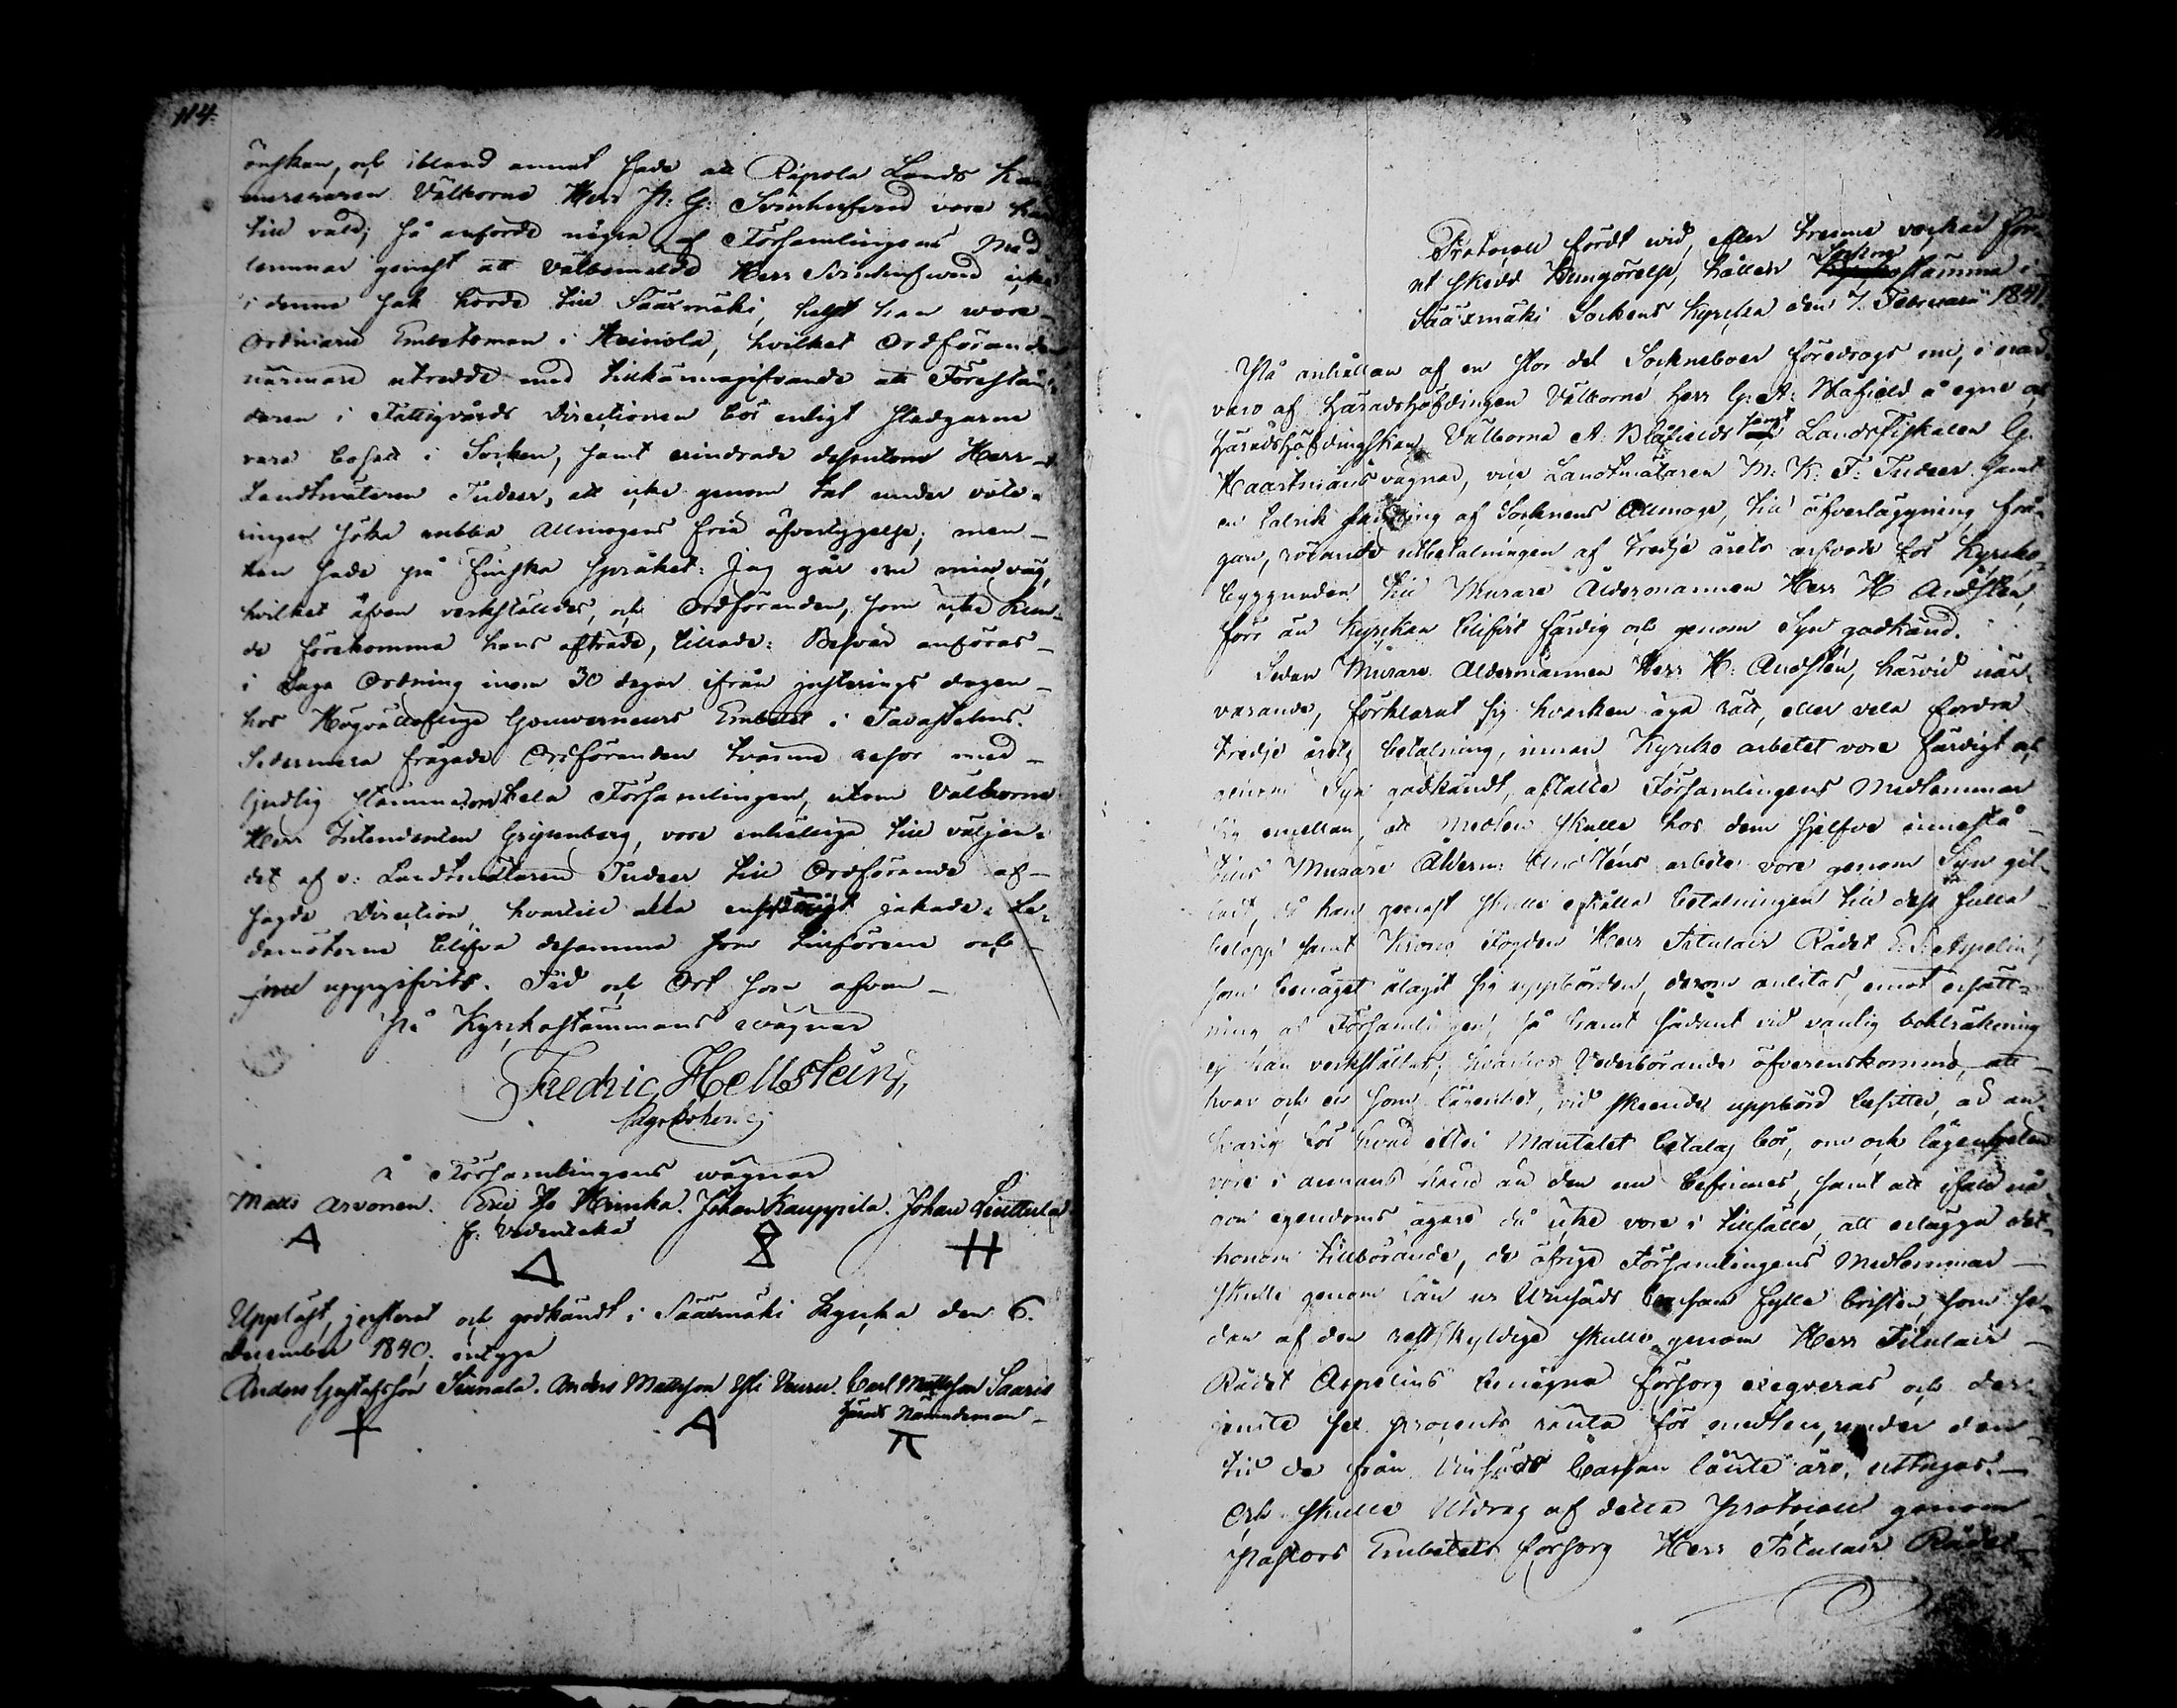 114.
önskan, och ibland annat sade att Rapola Lands Ka-
mereraren Välborne Herr P: G: Svinhufvud vore han
till vald; så anförde några af Församlingens Med-
lemmar genast att Välbemälde Herr Svinhufvud icke
i denne sak hörde till Sääxmäki, helst han wore
Ordinarie Embetsman i Heinola, hvilket Ordföranden
närmare utredde med tillkännagifvande att Förestån-
daren i Fattigvårds Directionen bör enligt stadgarne
vara bosatt i Socken, samt erindrade dessutom Herr
Landtmätaren Tudeer, att icke genom tal under våte-
ringen söka rubba Allmogens fria öfvertygelse; men
han sade på finska språket: Jag går om min väg,
hvilket äfven verkställdes, och Ordföranden, som icke kun-
de förekomma hans afträde, tillade: Besvär anföras
i Laga Ordning inom 30 dagar ifrån justerings dagen
hos Högvälloflige Gouverneurs Embetet i Tavastehus.
Sedermera frågade Ordföranden tvänne resor med
ljudlig stämma om hela Församlingen, utom Välborne
Herr Intendenten Gripenberg, vore enhällige till väljan-
det af v: Landtmätaren Tudeer till Ordförande af
sagde Direction, hvartill alla jakade. Le-
damöterne blifva desamma som tillförene och
uppgifvits. Tid och Ort som ofvan
På Kyrkostämmans vägnar
Fredric Hellsteins,
Kyrkoherde
å Församlingens wägnar
Matts Arvonen. Eric Jo Himka. Johan Kauppila. Johan Linttula
fr: Vedentaka
Uppläst, justerat och godkändt i Sääxmäki Kyrka den 6.
December 1840; intyga
Anders Gustafsson Simola. Anders Mattsson Yli Uuru. Carl Mattsson Saaris
Härads Nämndeman
Protocoll fördt wid, efter trenne veckor för-
ut skedd kungörelse, hållen Sockne stämma i
Sääxmäki Sockens Kyrka den 7. Februarii 1841.
På anhållan af en stor del Sockneboer föredrogs nu, i när-
varo af Häradshöfdingen Välborne Herr G: A: Blåfield å egne och
Häradshöfdingskan Välborna A: Blåfields samt Landsfiskalen G.
Haartmans vägnar, vice Landtmätaren M: K: F: Tudeer samt
en talrik samling af Socknens Allmoge, till öfverläggning frå-
gan, rörande utbetalningen af tredje årets arfvode för Kyrko-
byggnaden till Murare Åldermannen Herr H Andstén,
förr än Kyrkan blifvit färdig och genom Syn godkänd.
Sedan Murare Åldermannen Herr H: Andstén, härvid när-
varande, förklarat sig hvarken äga rätt, eller vela fordra
tredje årets betalning, innan Kyrko arbetet vore färdigt och
genom Syn godkändt, aftalte Församlingens Medlemmar
sig emellan, att medlen skulle hos dem sjelfve innestå
tills Murare Ålderm: Andsténs arbete vore genom Syn gil-
ladt, då han genast skulle erhålla betalningen till dess fulla
belopp samt Krono Fogden Herr Titulair Rådet E: J: Aspelin,
som benäget åtagit sig uppbörden, derom anlitas, emot ersätt-
ning af Församlingen, så framt sådant vid vanlig boklräkning
ej kan verkställas; hvarhos Vederbörande öfverenskommo, att
hvar och en som lägenhet, vid skeende uppbörd besitter, är an-
svarig för hvad efter Mantalet betalas bör, om och lägenheten
vore i annans hand än den nu befinnes, samt att ifald nå-
gon egendoms ägare då icke vore i tillfälle, att erlägga det
honom tillhörande, de öfrige Församlingens Medlemmar
skulle genom lån ur Unsäds Cassan fylla bristen, som se-
dan af den restskyldige skulle genom Herr Titulair
Rådet Aspelins benägna försorg exeqveras och der-
jemte sex procents ränta för medlen, under den
tid de från Unsäds Cassan lånte äro, uttagas.
Och skulle Utdrag af detta Protocoll genom
Pastors Embetets försorg Herr Titulair Rådet